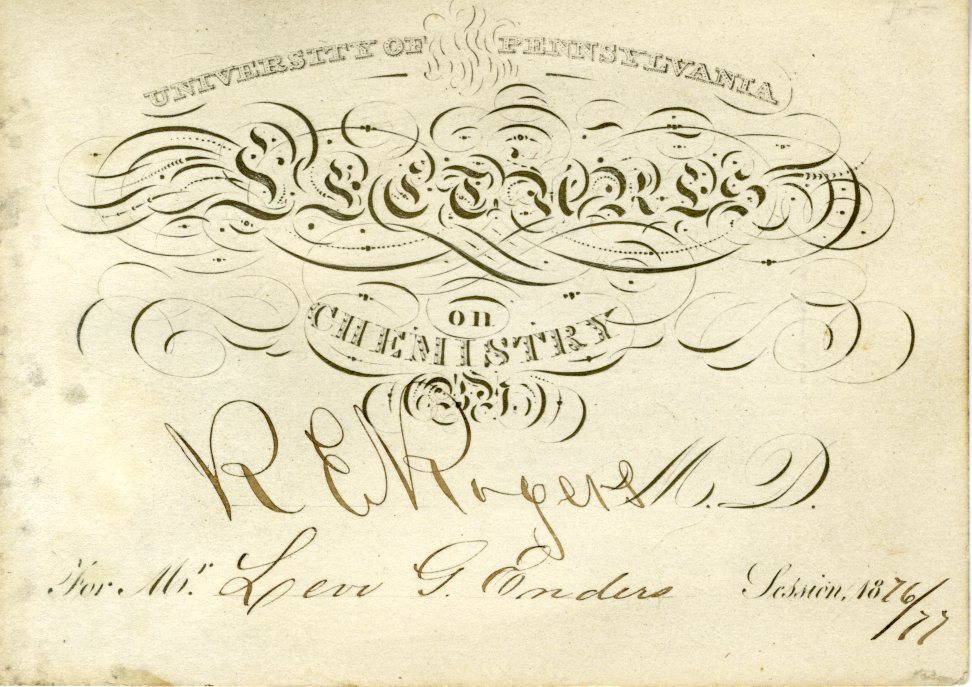 UNIVERSITY OF PENNSYLVANIA
LECTURES
on
CHEMISTRY
BY
R E Rogers M. D.
For Mr. Levi G. Enders Session, 1876/77